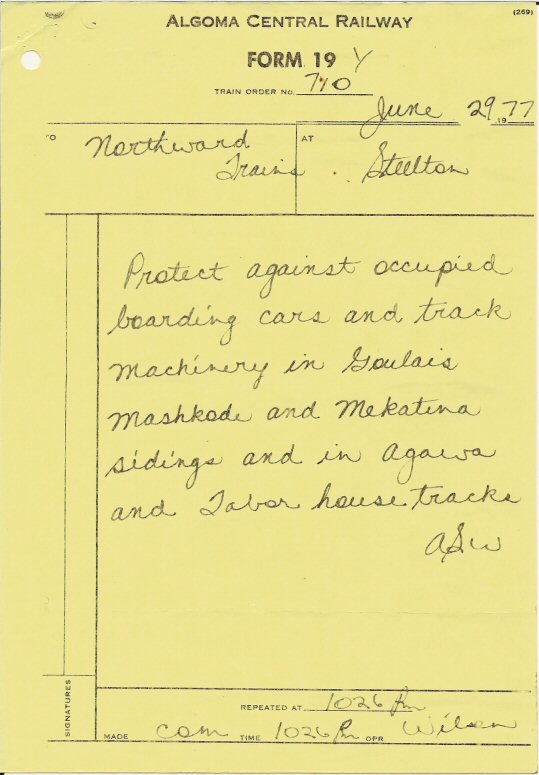 (269)
ALGOMA CENTRAL RAILWAY
FORM 19 Y
TRAIN ORDER NO. 710
June 29 1977
TO Northward Trains AT Steelton
Protect against occupied
boarding cars and track
Machinery in Goulais
Mashkode and Mekatina
sidings and in Agawa
and Tabor house tracks
ASW
SIGNATURES
REPEATED AT 1026 Pm
MADE com TIME 1026 Pm OPR Wilson